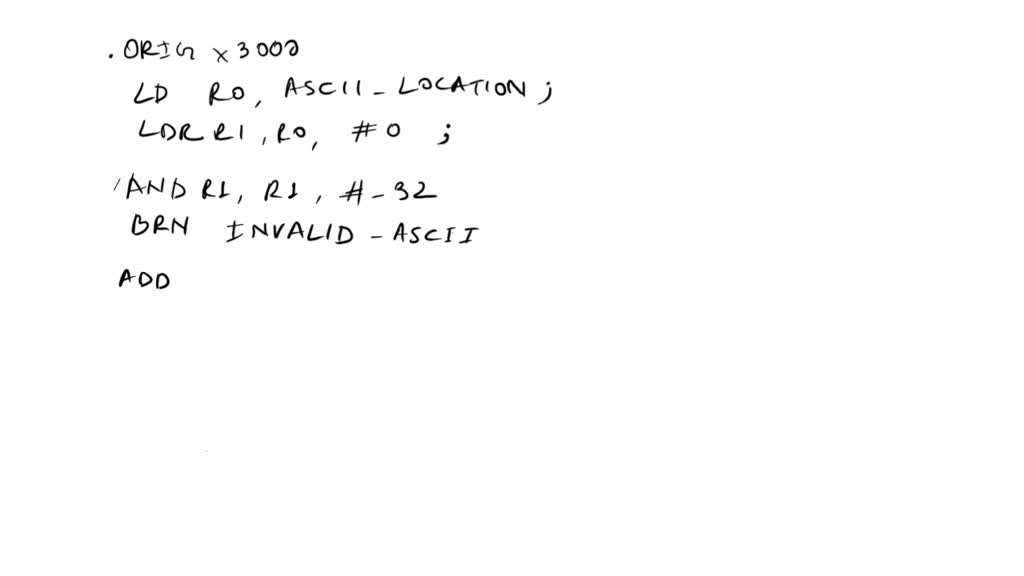 .ORIG x3000
LD R0, ASCII-LOCATION;
LDR R1, R0, #0 ;
AND R1, R1, #-32
BRN INVALID-ASCII
ADD